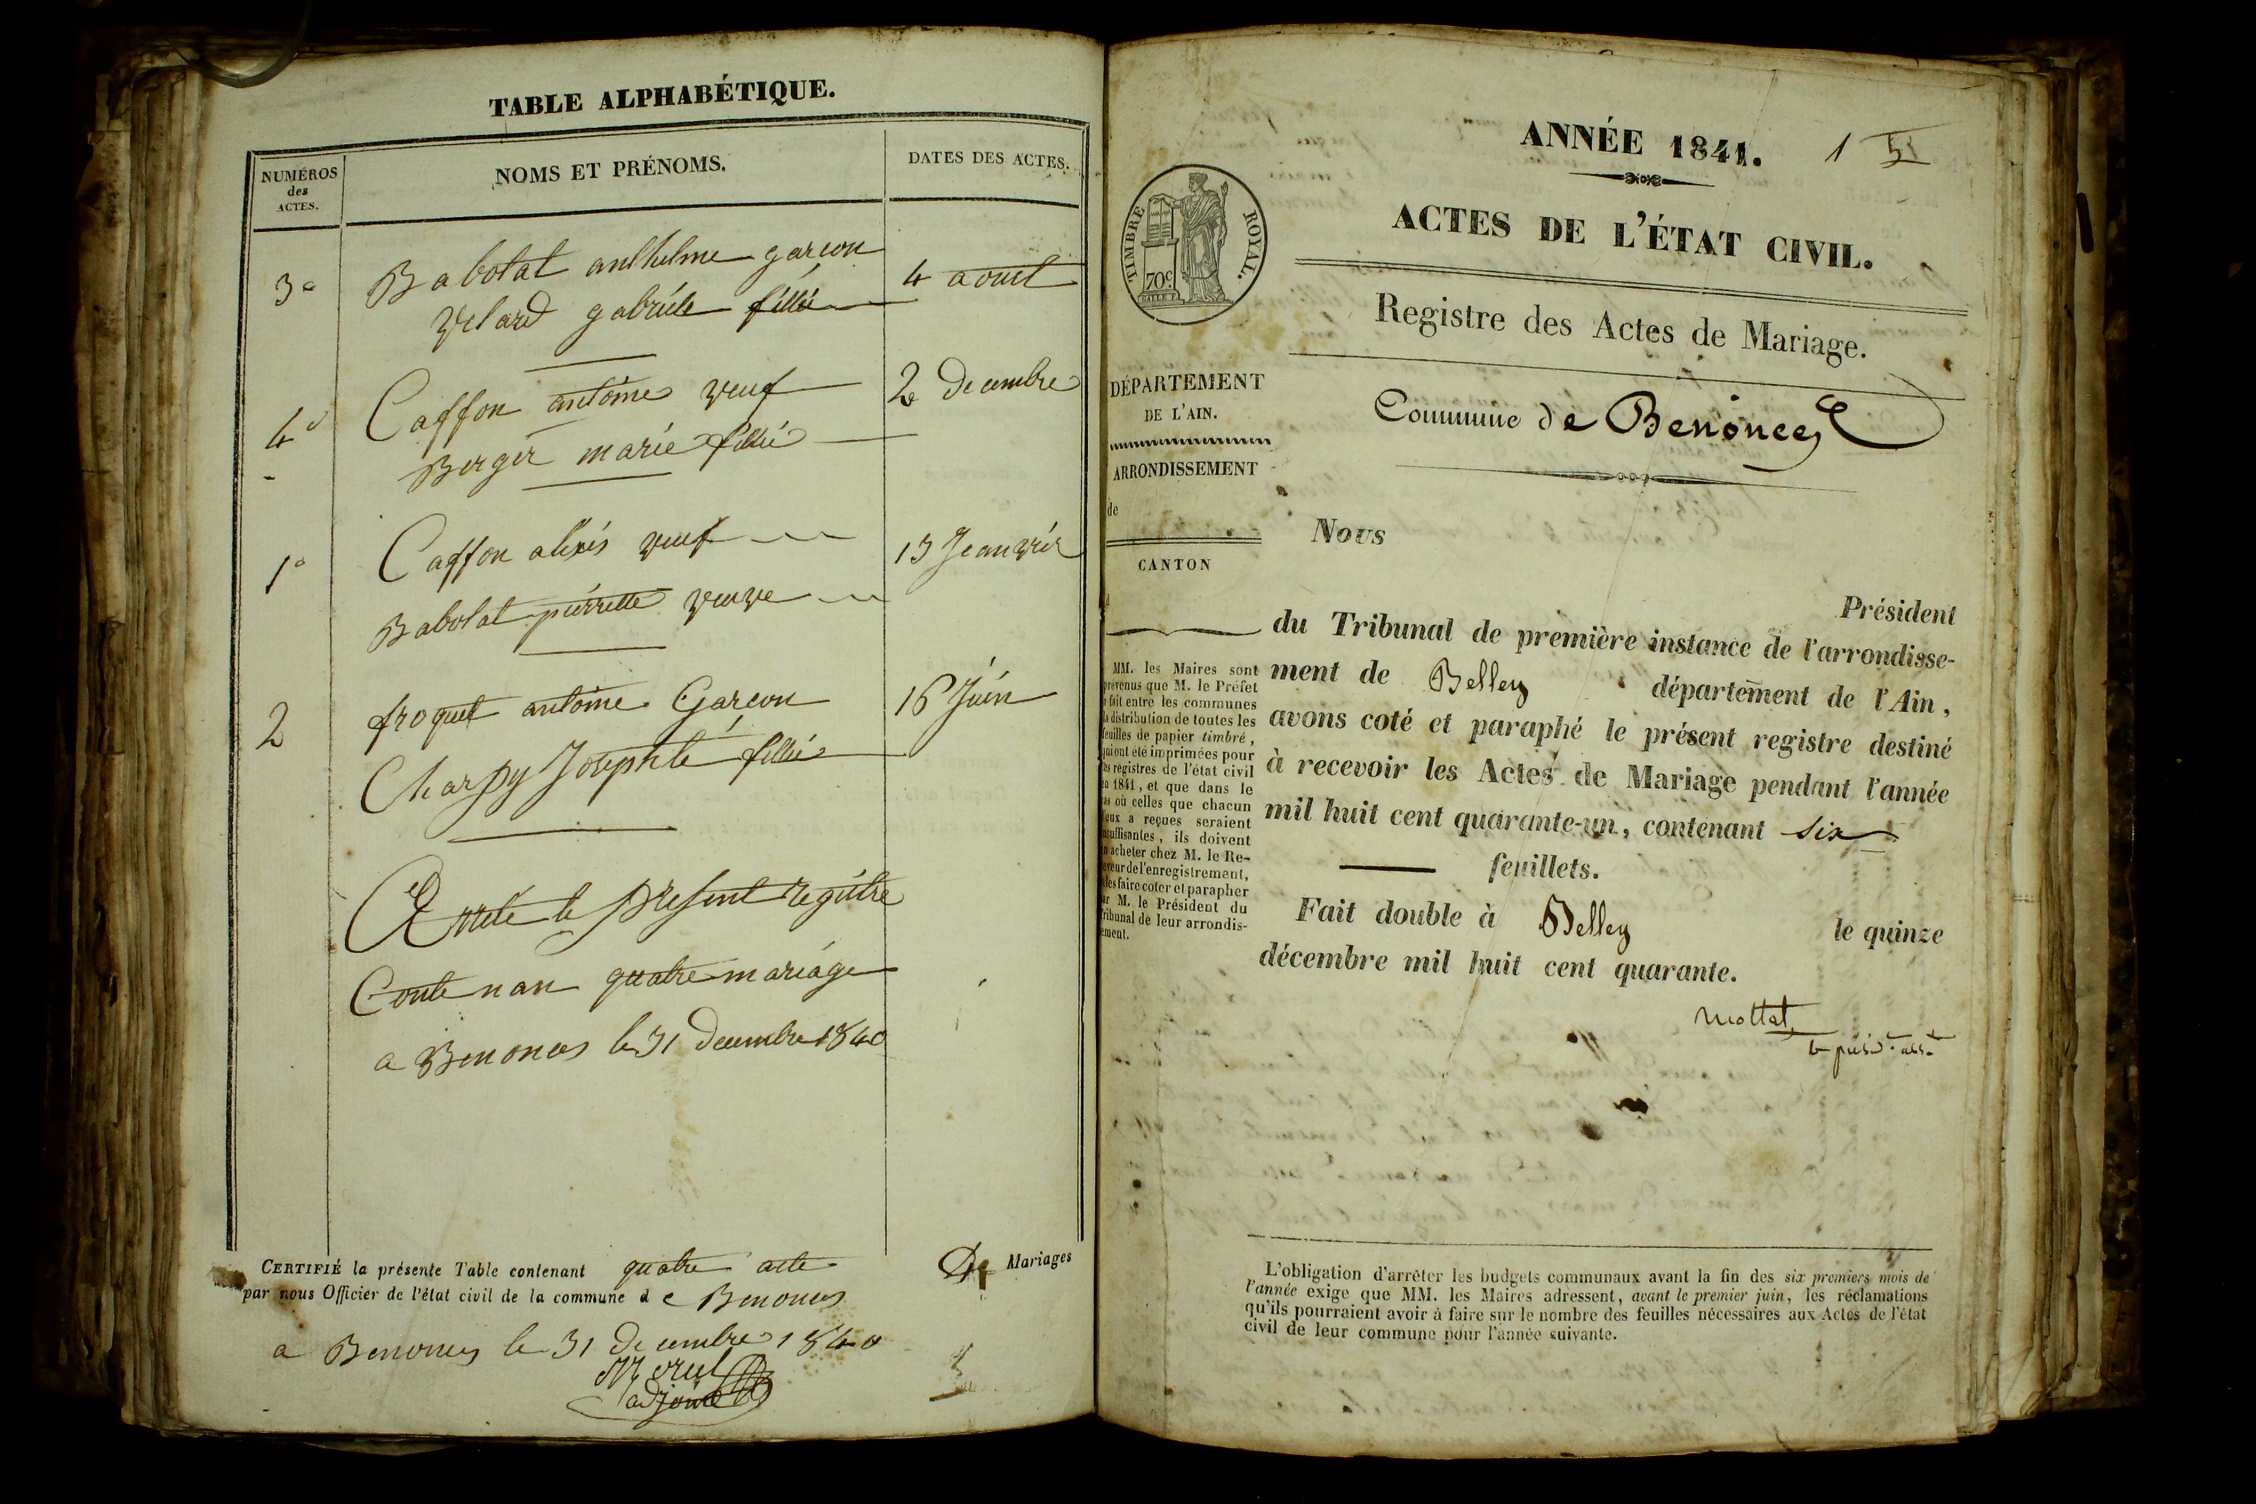 TABLE ALPHABÉTIQUE.
NUMÉROS
des
ACTES.
NOMS ET PRÉNOMS.
DATES DES ACTES.
3º Babolat anthelme garcon
velard gabriele fillie
4 aout
4º Caffon antoine veuf
2 decembre
Berger marie fillie
1º Caffon aléxis veuf
13 Jeanvier
Babolat pierrette veuve
2 froquet antoine Garcon
16 Juin
Charpy Josephte fillie
Arrete le present registre
Contenan quatre mariage
a Benonces le 31 decembre 1840
CERTIFIÉ la présente Table contenant quatre acte De Mariages
par nous Officier de l'état civil de la commune de Benonces
a Benonces le 31 decembre 1840
adjoint
ANNÉE 1841.
1
ACTES DE L'ÉTAT CIVIL.
TIMBRE ROYAL.
70c
Registre des Actes de Mariage.
DÉPARTEMENT
DE L'AIN.
Commune de Benonces
ARRONDISSEMENT
de
CANTON
Nous
Président
du Tribunal de première instance de l'arrondisse-
ment de Belley département de l'Ain,
avons coté et paraphé le présent registre destiné
à recevoir les Actes de Mariage pendant l'année
mil huit cent quarante-un, contenant six
feuillets.
Fait double à Belley le quinze
décembre mil huit cent quarante.
Mottat
MM. les Maires sont
prévenus que M. le Préfet
a fait entre les communes
la distribution de toutes les
feuilles de papier timbré,
qui ont été imprimées pour
les registres de l'état civil
en 1841, et que dans le
cas où celles que chacun
d'eux a reçues seraient
insuffisantes, ils doivent
en acheter chez M. le Re-
ceveur de l'enregistrement,
et les faire coter et parapher
par M. le Président du
Tribunal de leur arrondis-
sement.
L'obligation d'arrêter les budgets communaux avant la fin des six premiers mois de
l'année exige que MM. les Maires adressent, avant le premier juin, les réclamations
qu'ils pourraient avoir à faire sur le nombre des feuilles nécessaires aux Actes de l'état
civil de leur commune pour l'année suivante.